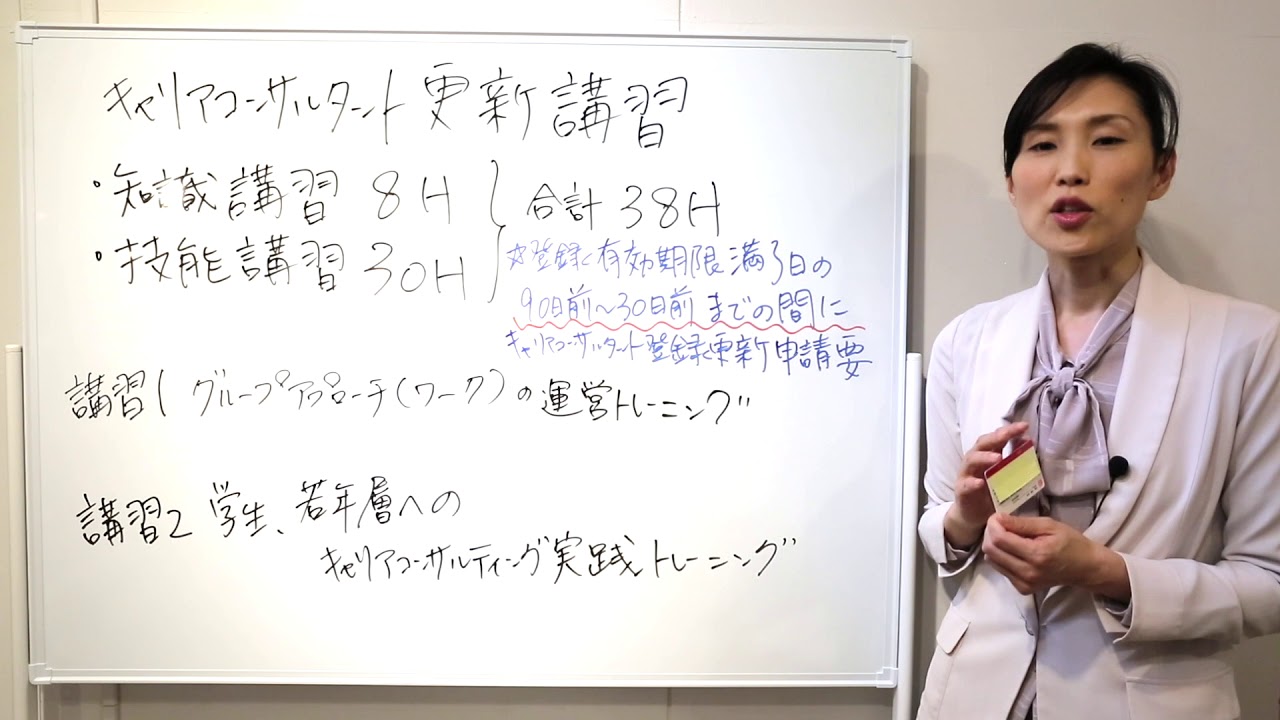 キャリアコンサルタント更新講習
・知識講習 8H
・技能講習 30H
合計 38H
☆登録く有効期限満了日の
90日前〜30日前までの間に
キャリアコンサルタント登録更新申請要
講習1 グループアプローチ(ワーク)の運営トレーニング
講習2 学生、若年層への
キャリアコンサルティング実践トレーニング